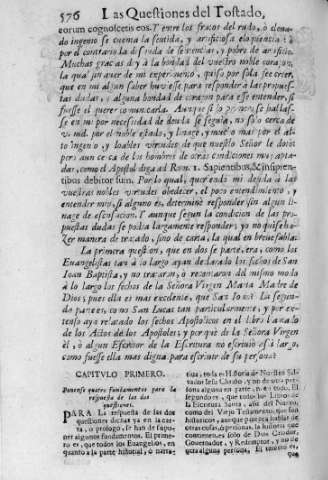 576 Las Questiones del Tostado,
eorum cognoscetis eos. Y entre los frutos del rudo, ò elevado
ingenio se cuenta la sentida, y artificiosa eloquencia: ò
por el contrario la desnuda de sentencias, y pobre de artificio.
Muchas gracias dy à la bondad del vuestro noble coraçon,
la qual sin aver de mi experimento, quiso por sola fee creer,
que en mi algun saber huviesse para responder à las propuestas
dudas, y alguna bondad de coraçon para esse entender, si
fuesse el querer comunicarla.
se en mi por necesidad de deuda se seguia, no solo cerca de
vos por el noble estado, y linage, y mucho mas por el alto
ingenio, y loables virtudes de que nuestro Señor le dotò:
pero aun cerca de los hombres de otras condiciones muy
como el Apostol diga ad Rom. 1. Sapientibus, & insipientibus
debitor sum. Por lo qual, queriendo mi deuda à las
vuestras nobles virtudes obedecer, el poco entendimiento, y
entender mio, si alguno es, determinè responder sin algun
de escusacion. Y aunque segun la condicion de las propuestas
dudas se podia largamente responder; yo no quise hazer
manera de tratado, sino de carta, la qual en breve fabla.
La primera question, que en dos se parte, era, como los
Evangelistas tan à lo largo ayan declarado los fechos de San
Joan Baptista, y no trataron, ò recontaron del mismo modo
à lo largo los fechos de la Señora Virgen Maria Madre de
Dios; pues ella es mas excelente, que San Joan? La segunda
parte es, como San Lucas tan particularmente, y por extenso
aya relatado los fechos Apostolicos en el libro llamado
de los Actos de los Apostoles; y porque de la Señora Virgen
èl, ò algun Escritor de la Escritura no escriviò assi à largo,
como fuesse ella mas digna para escrivir de su persona?
CAPITULO PRIMERO.
Ponense quatro fundamentos para la
respuesta de las dos
questiones.
PARA La respuesta de las dos
questiones dichas ya en la carta,
ò prologo, se han de suponer
algunos fundamentos. El primero
es, que todos los Evangelios, en
quanto à la parte historial, ò narra-
tiva, toda es Historia de Nuestro Salvador
Jesu Christo, y no de otra persona
alguna en parte, ni en todo. El
segundo es, que todos los Libros de
la Escritura Santa, assi del Nuevo,
como del Viejo Testamento, que son
historicos, aunque parezca hablar de
otras cosas, la historia que en ellos se
contiene es solo de Dios Criador,
Governador, y Redemptor, y no de
otra